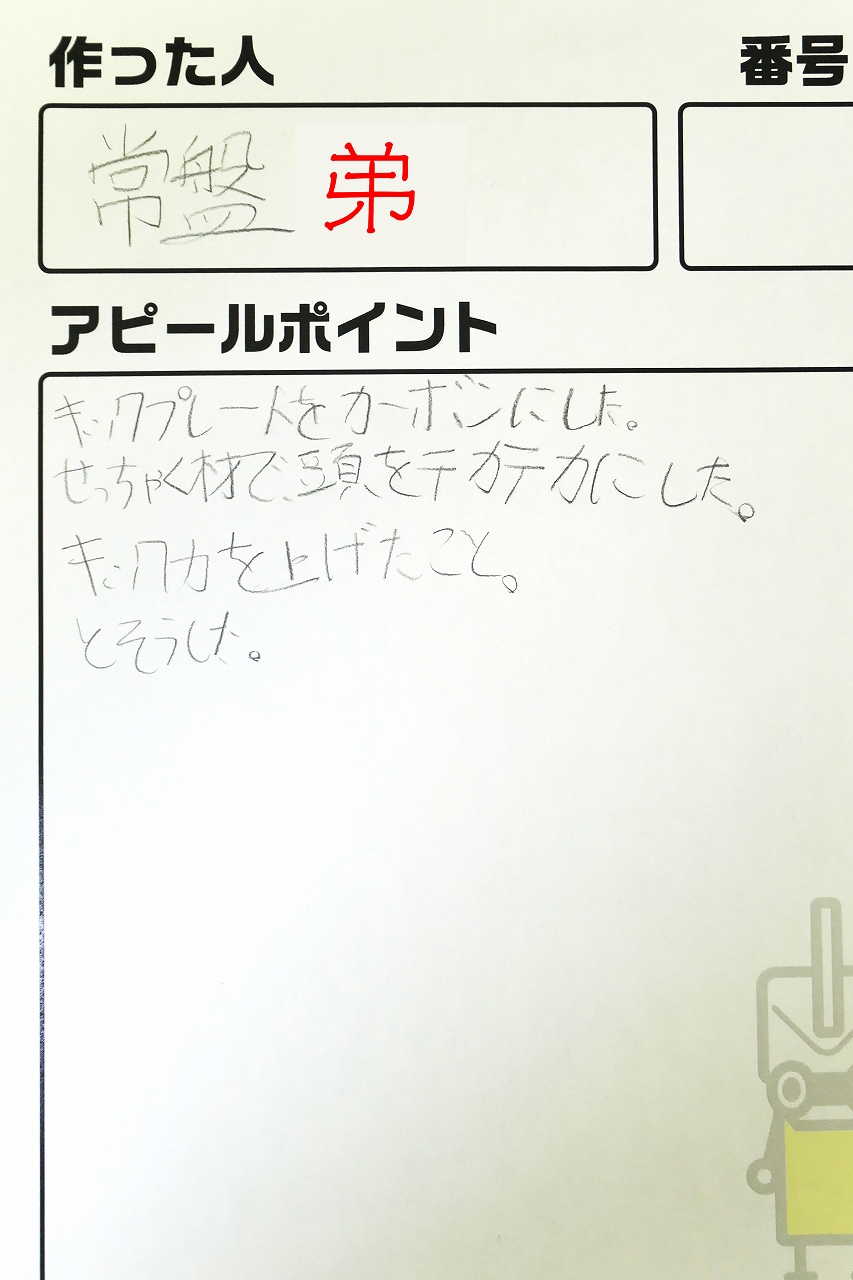 作った人
番号
常盤 弟
アピールポイント
キックプレートをカーボンにした。
せっちゃく材で、頭をテカテカにした。
キック力を上げたこと。
とそうした。